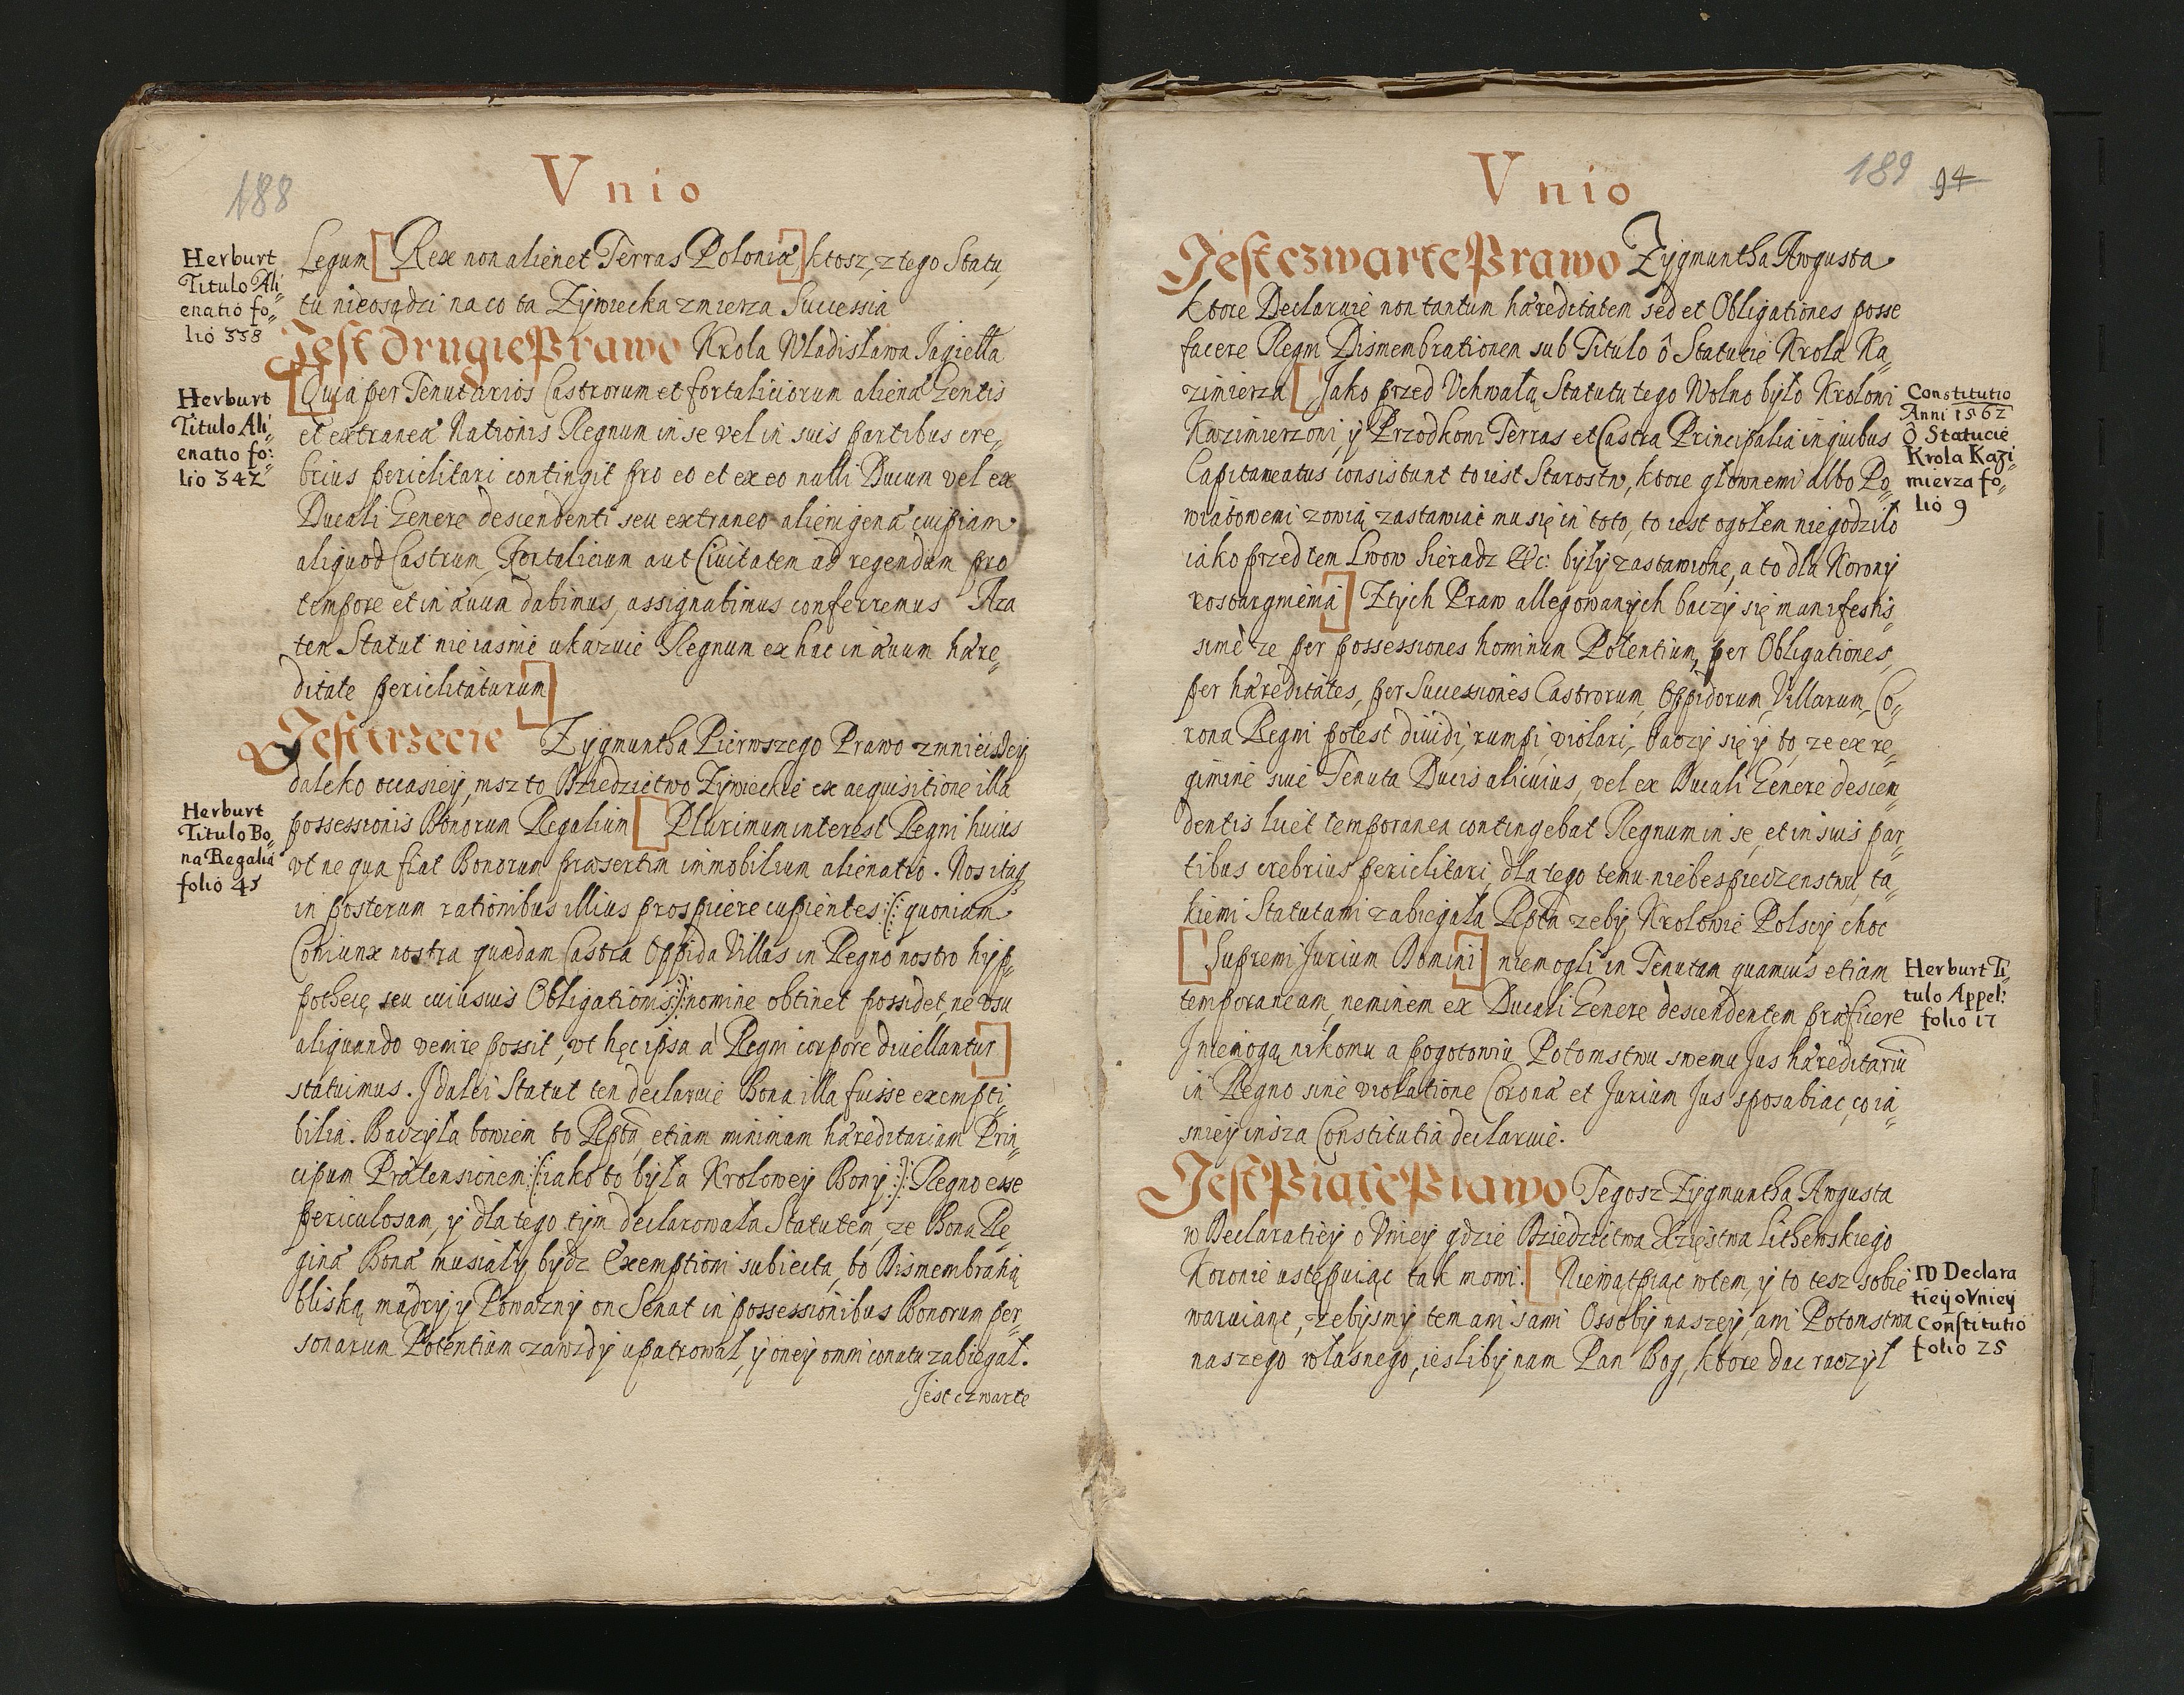 188
Vnio
Herburt
Titulo Ali„
enatio fo„
lio 338
Legum [Rex non alienet Terras Poloniæ] ktosz, z tego Statu„
tu nieosądzi na co ta Zÿwiecka zmierza Successia
Jest drugie Prawo Krola Wladisława Jagiełła
Herburt
Titulo Ali„
enatio fo„
lio 342
[Quia per Tenutarios Castrorum et fortaliciorum alienæ Gentis
et extraneæ Nationis Regnum in se vel in suis partibus cre„
brius periclitari contingit pro eo et ex eo nulli Ducum vel ex
Ducali Genere descendenti seu extraneo alienigenæ cuipiam
aliquod Castrum, Fortalicium aut Ciuitatem ad regendum pro
tempore et in æuum dabimus, assignabimus conferremus Aza
ten Statut nie iasnie ukazuie Regnum ex hac in æuum hære„
ditate periclitaturum]
Jest trzecie Zÿgmuntha Pierwszego Prawo z mnieiszeÿ
daleko occasieÿ, nisz to Dziedzictwo Zÿwieckie ex acquisitione illa
Herburt
Titulo Bo„
na Regalia
folio 45
possessionis Bonorum Regalium [Plurimum interest Regni huius
vt ne qua fiat Bonorum præsertim immobilium alienatio. Nos itaq
in posterum rationibus illius prospicere cupientes :(: quoniam
Coniunx nostra quædam Castra Oppida Villas in Regno nostro hÿp„
pothecę seu cuiusuis Obligationis :): nomine obtinet possidet, ne vsu
aliquando venire possit, vt hęc ipsa á Regni corpore diuellantur]
statuimus. J daleÿ Statut ten declaruie Bona illa fuisse exempti„
bilia. Baczÿła bowiem to Rptą etiam minimam hæreditariam Prin„
cipum Prætensionem :(: iako to bÿła Kroloweÿ Bonÿ :): Regno esse
periculosam, ÿ dla tego tÿm declarowała Statutem, ze Bona Re„
ginæ Bonæ musiałÿ bÿdz Exemptioni subiecta, bo Dismembratią
bliską mądrÿ ÿ Powaznÿ on Senat in possessionibus Bonorum per„
sonarum Potentium zawzdÿ upatrował, ÿ oneÿ omni conatu zabiegał.
Jest czwarte
Vnio
189 94
Jest czwarte Prawo Zÿgmuntha Awgusta
ktore Declaruie non tantum hæreditatem sed et Obligationes posse
facere Regni Dismembrationem sub Titulo ô Statucie Krola Ka„
zimierza [Jako przed Vchwałą Statutu tego Wolno bÿło Krolowi
Constitutio
Anni 1562
Ô Statucie
Krola Kazi„
mierza fo„
lio 9
Kazimierzowi, ÿ Przodkom Terras et Castra Principalia in quibus
Capitaneatus consistunt to iest Starostw, ktore głownemi albo Po„
wiatowemi zowią zastawiać mu się in toto, to iest ogołem niegodziło
iako przed tem Lwow Sieradz &c: bÿłÿ zastawione, a to dla Koronÿ
rostargnienia] Z tÿch Praw allegowanÿch baczÿ się manifestis„
sime ze per possessiones hominum Potentium, per Obligationes,
per hæreditates, per Successiones Castrorum, Oppidorum, Villarum, Co„
rona Regni potest diuidi, rumpi, violari, baczÿ się ÿ to, ze ex re„
gimine siue Tenuta Ducis alicuius, vel ex Ducali Genere descen„
dentis licèt temporanea contingebat Regnum in se, et in suis par„
tibus crebrius periclitari, dla tego temu niebespieczenstwu, ta„
kiemi Statutami zabiegała Rptą zebÿ Krolowie Polscÿ choc
[Supremi Jurium Domini] niemogli in Tenutam quamuis etiam
Herburt Ti„
tulo Appel:
folio 17
temporaneam, neminem ex Ducali Genere descendentem præficere
J niemogą nikomu a pogotowiu Potomstwu swemu Jus hæreditariū
in Regno sine violatione Coronæ et Jurium Jus sposabiac, co ia„
snieÿ insza Constitutia declaruie.
Jest Piąte Prawo Tegosz Zÿgmuntha Awgusta
w Declaratieÿ o Vnieÿ gdzie Dziedzictwa Xzięstwa Lithewskiego
Koronie ustępuiąc tak mowi. [Niewątpiąc wtem, ÿ to tesz sobie
W Declara
tieÿ o Vnieÿ
Constitutio
folio 25
waruiąc, zebÿsmÿ tem ani sami Ossobÿ naszeÿ, ani Potomstwa
naszego własnego, ieslibÿ nam Pan Bog, ktore dac raczÿł